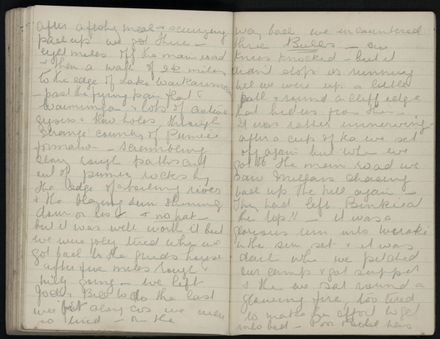 after a frothy meal - scurrying
pack up - we got there -
eight miles off the main road
& then a walk of six miles
to the edge of Lake Waikaremoana
- past the frying pan flat &
Waimangu & lots of active
geysers & blow holes through
strange country of Pumice
formation - scrambling
along rough paths cut
out of pumice rocks by
the edge of boiling rivers
& the blazing sun shining
down on us & no path -
but it was well worth it but
we were jolly tired when we
got back to the guides house
- after five miles rough &
hilly going - we left
Jock & Bill to do the last
wee bit along cos we were
so tired - on the
way back we encountered
three Bulls - our
knees knocked - but it
didn't stop us running
till we were up a little
path & round a cliff edge &
that hid us from them -
it was rather unnerving -
after a cup of tea we set
off again but when we
got to the main road we
saw Mullans chasing
back up the hill again -
They had left
the top!! it was a
glorious run into Wairakei
in the sun set & it was
dark when we pitched
our camps & got supper
& the we sat round a
glowing fire, too tired
to make an effort to get
into bed - Poor